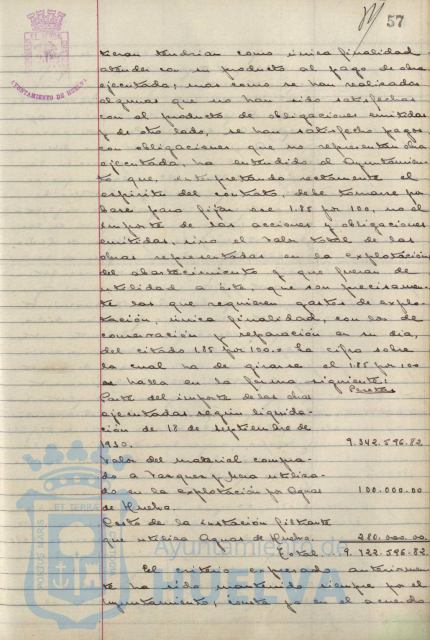 57
AYUNTAMIENTO DE HUELVA
tieran tendrian como única finalidad
atender con su producto al pago de obra
ejecutada, mas como se han realizado
algunas que no han sido satisfechas
con el producto de obligaciones emitidas
y de otro lado, se han satisfecho pagos
con obligaciones que no representan obra
ejecutada, ha entendido el Ayuntamien
to que, interpretando rectamente el
espíritu del contrato, debe tomarse por
base para fijar ese 1.85 por 100, no el
importe de las acciones y obligaciones
emitidas, sino el valor total de las
obras representadas en la explotación
del abastecimiento y que fueran de
utilidad a éste, que son precisamen-
te las que requieren gastos de explo-
tación, única finalidad, con los de
conservación y reparación en su día,
del citado 1.85 por 100. La cifra sobre
la cual ha de girarse el 1.85 por 100
se halla en la forma siguiente:
Pesetas
Parte del importe de las obras
ejecutadas según liquida-
ción de 18 de Septiembre de
1930. 9.342.596.82
Valor del material compra-
do a Vazquez y utiliza-
do en la explotación por Aguas
de Huelva. 100.000.00
Costo de la Estación filtrante
que utiliza Aguas de Huelva. 280.000.00
Total. 9.722.596.82
El criterio expresado anteriormen-
te ha sido mantenido siempre por el
Ayuntamiento, consta ya en el acuerdo
Ayuntamiento de
HUELVA
PORTUS MARIS ET TERRAE CUSTODIA